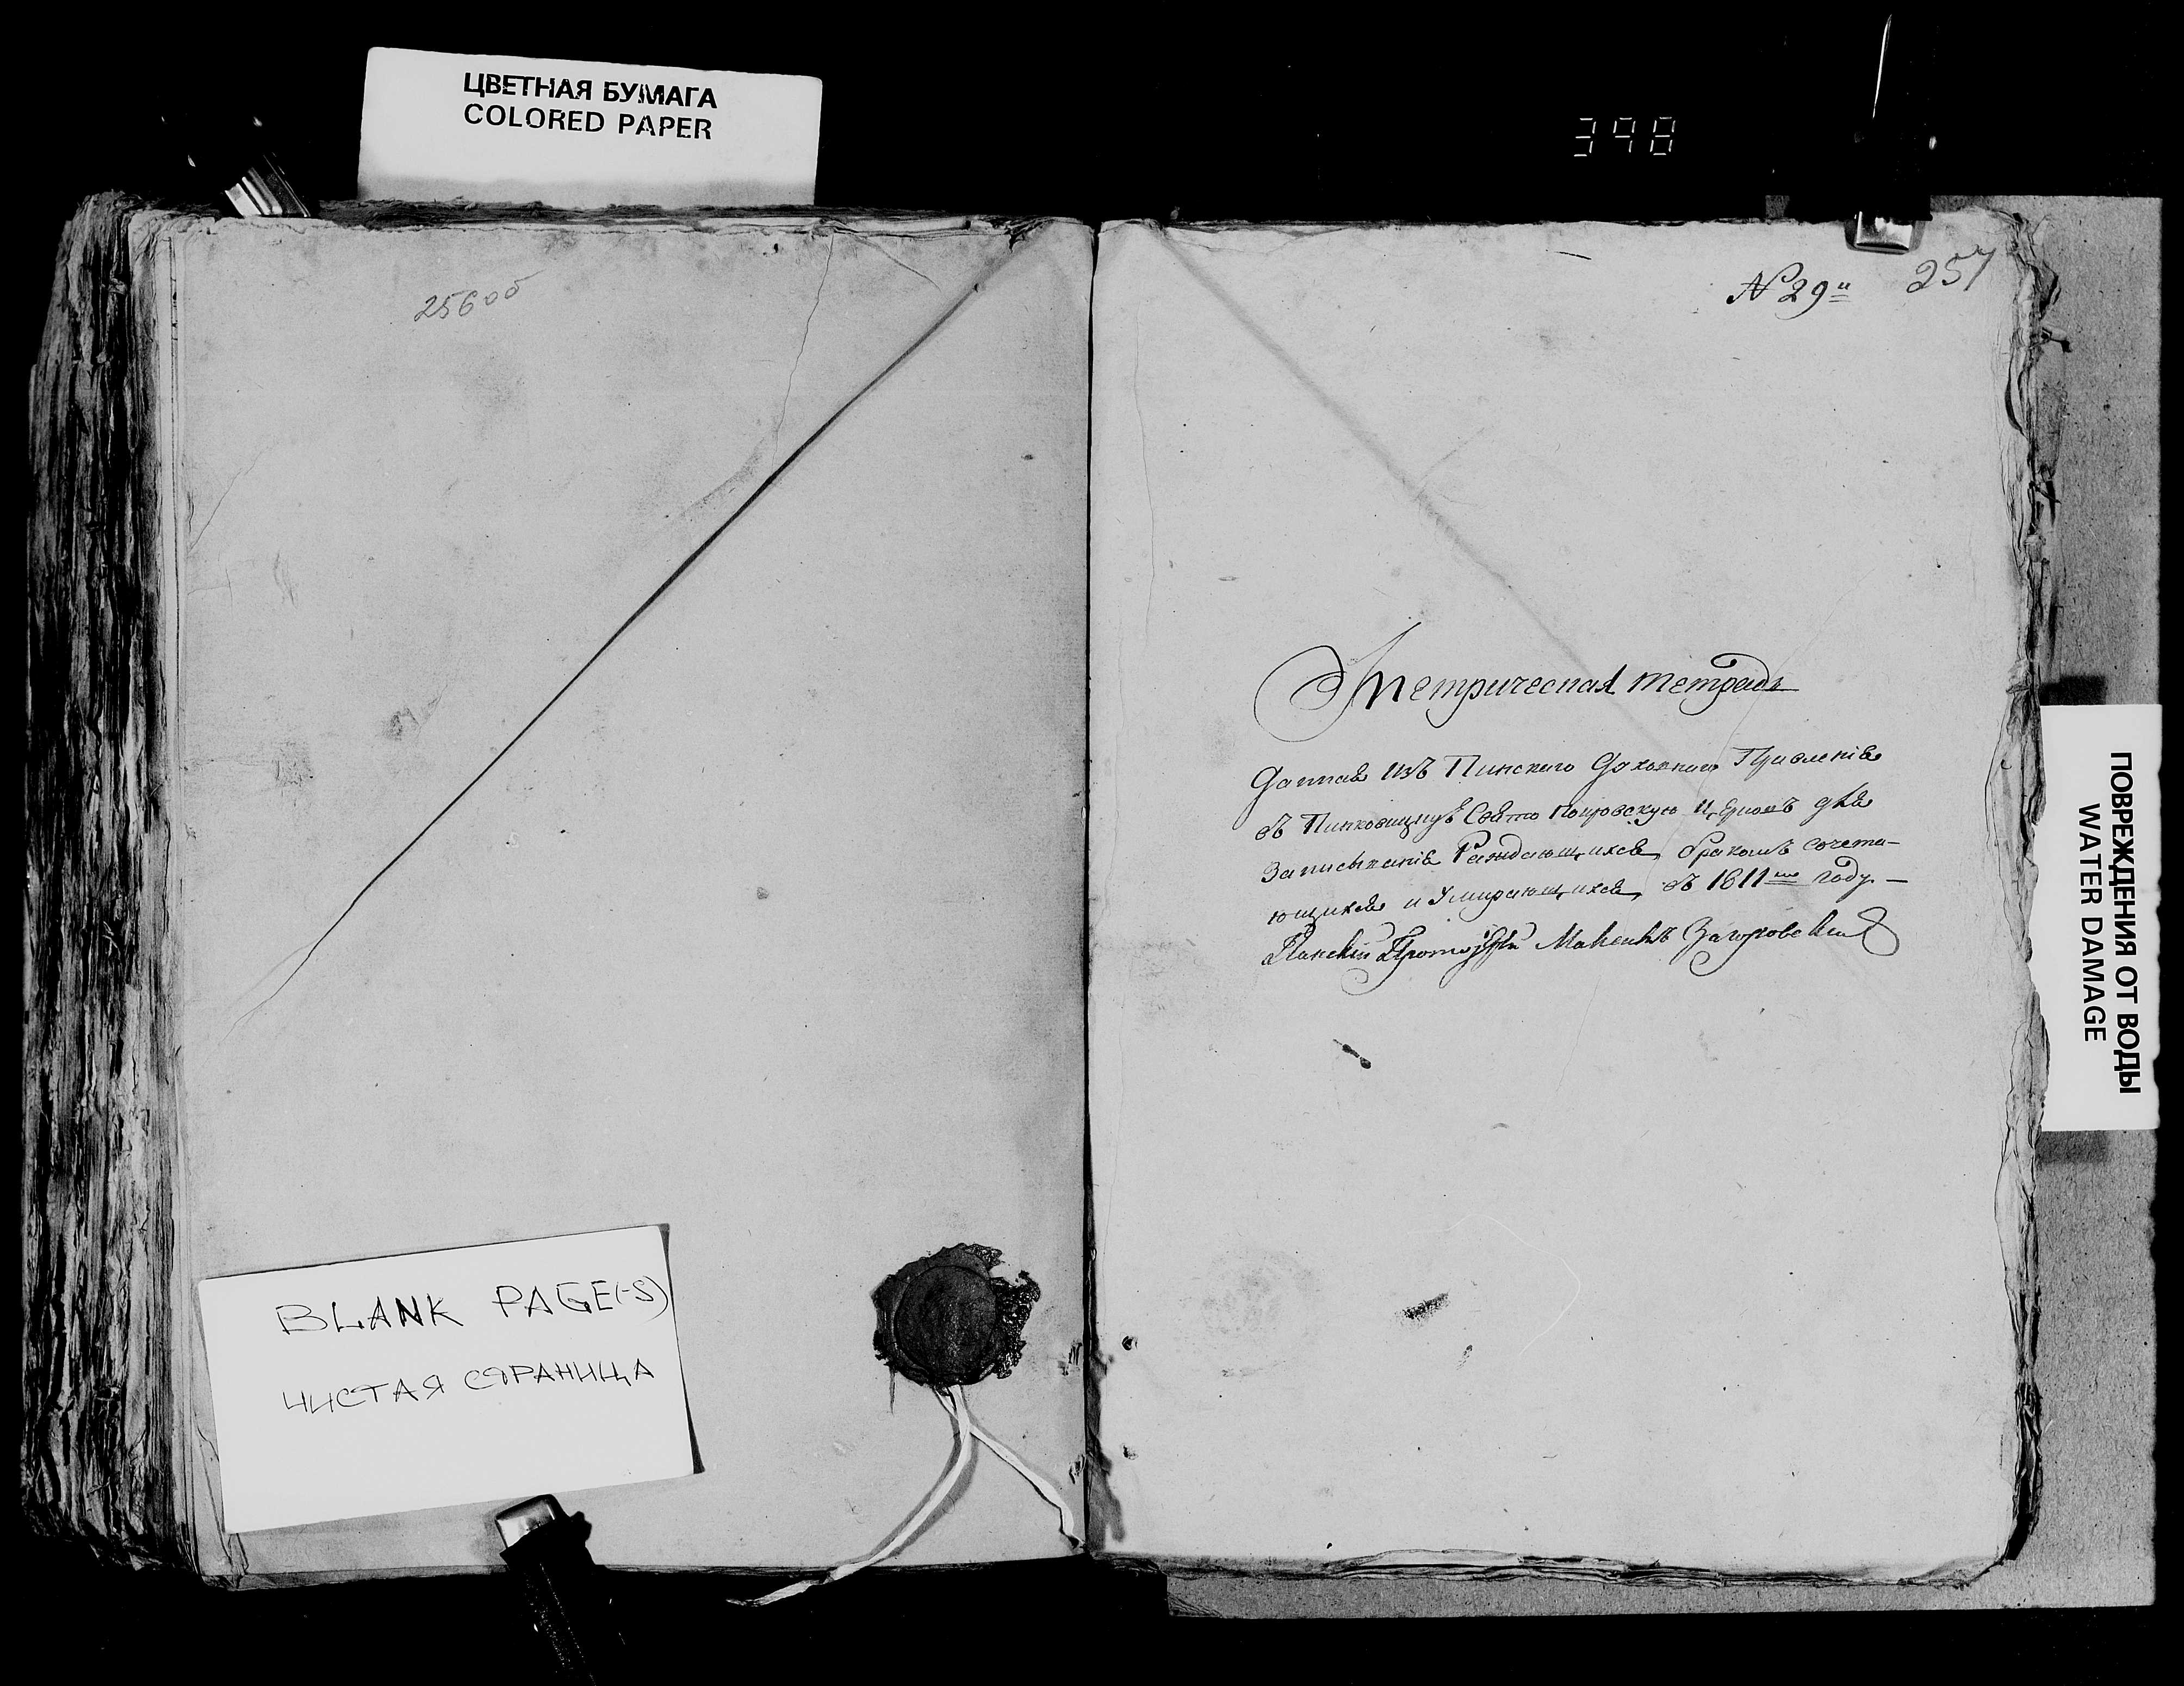 ЦВЕТНАЯ БУМАГА
COLORED PAPER
398
256об
№ 29й
257
Метрическая тетрадь
Данная изъ Пинскаго Духовнаго Правленія
въ Пинковицкую Свято Покровскую Церковь для
Записыванія Раждающихся, бракомъ сочета-
ющихся и Умирающихся, въ 1811мъ году. —
Пинскій Протоіерей Максимъ
BLANK PAGE(-S)
ЧИСТАЯ СТРАНИЦА
ПОВРЕЖДЕНИЯ ОТ ВОДЫ
WATER DAMAGE